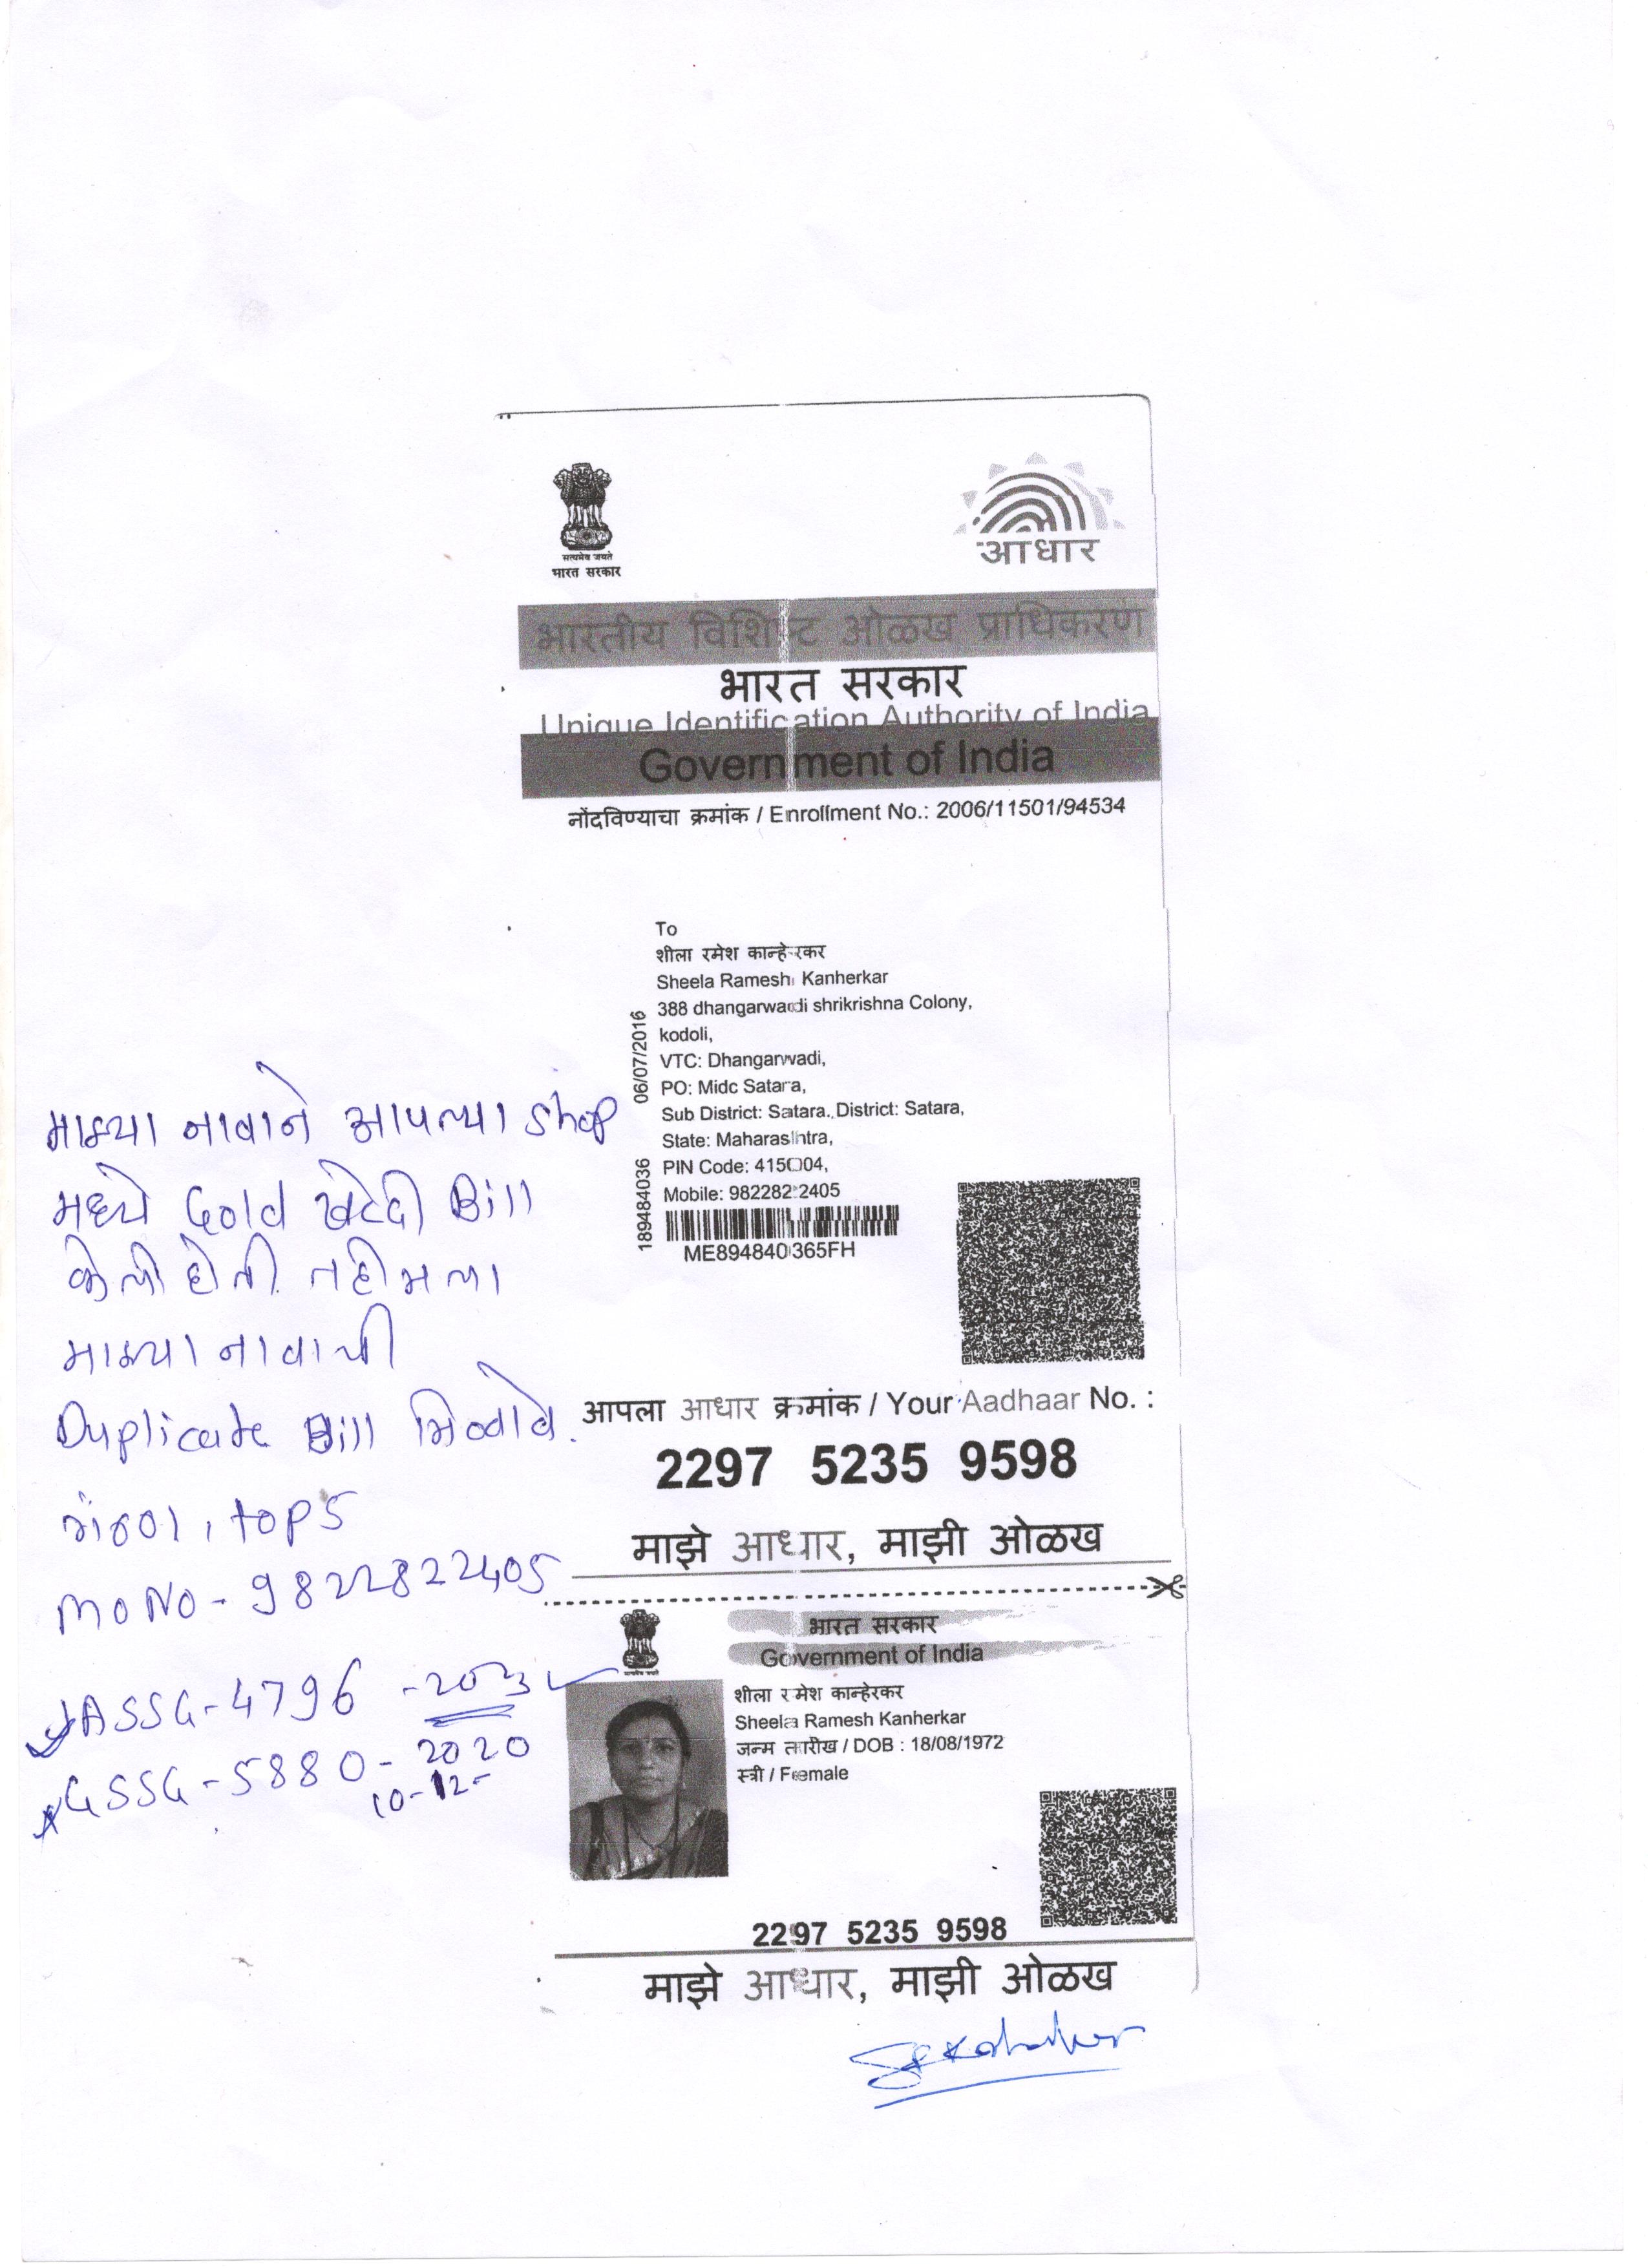 सत्यमेव जयते
भारत सरकार
आधार
भारतीय विशिष्ट ओळख प्राधिकरण
भारत सरकार
Unique Identification Authority of India
Government of India
नोंदविण्याचा क्रमांक / Enrollment No.: 2006/11501/94534
To
शीला रमेश कान्हेरकर
Sheela Ramesh Kanherkar
388 dhangarwadi shrikrishna Colony,
kodoli,
VTC: Dhangarwadi,
PO: Midc Satara,
Sub District: Satara, District: Satara,
State: Maharashtra,
PIN Code: 415004,
Mobile: 9822822405
06/07/2016
189484036
ME894840365FH
माझ्या नावाने आपल्या shop
मध्ये Gold खरेदी Bill
केली होती तरी मला
माझ्या नावाची
Duplicate Bill मिळावे.
गंठण, tops
MoNo - 9822822405
JASSG-4796 -
GSSG-5880-2020
10-12-
आपला आधार क्रमांक / Your Aadhaar No. :
2297 5235 9598
माझे आधार, माझी ओळख
भारत सरकार
Government of India
शीला रमेश कान्हेरकर
Sheela Ramesh Kanherkar
जन्म तारीख / DOB : 18/08/1972
स्त्री / Female
2297 5235 9598
माझे आधार, माझी ओळख